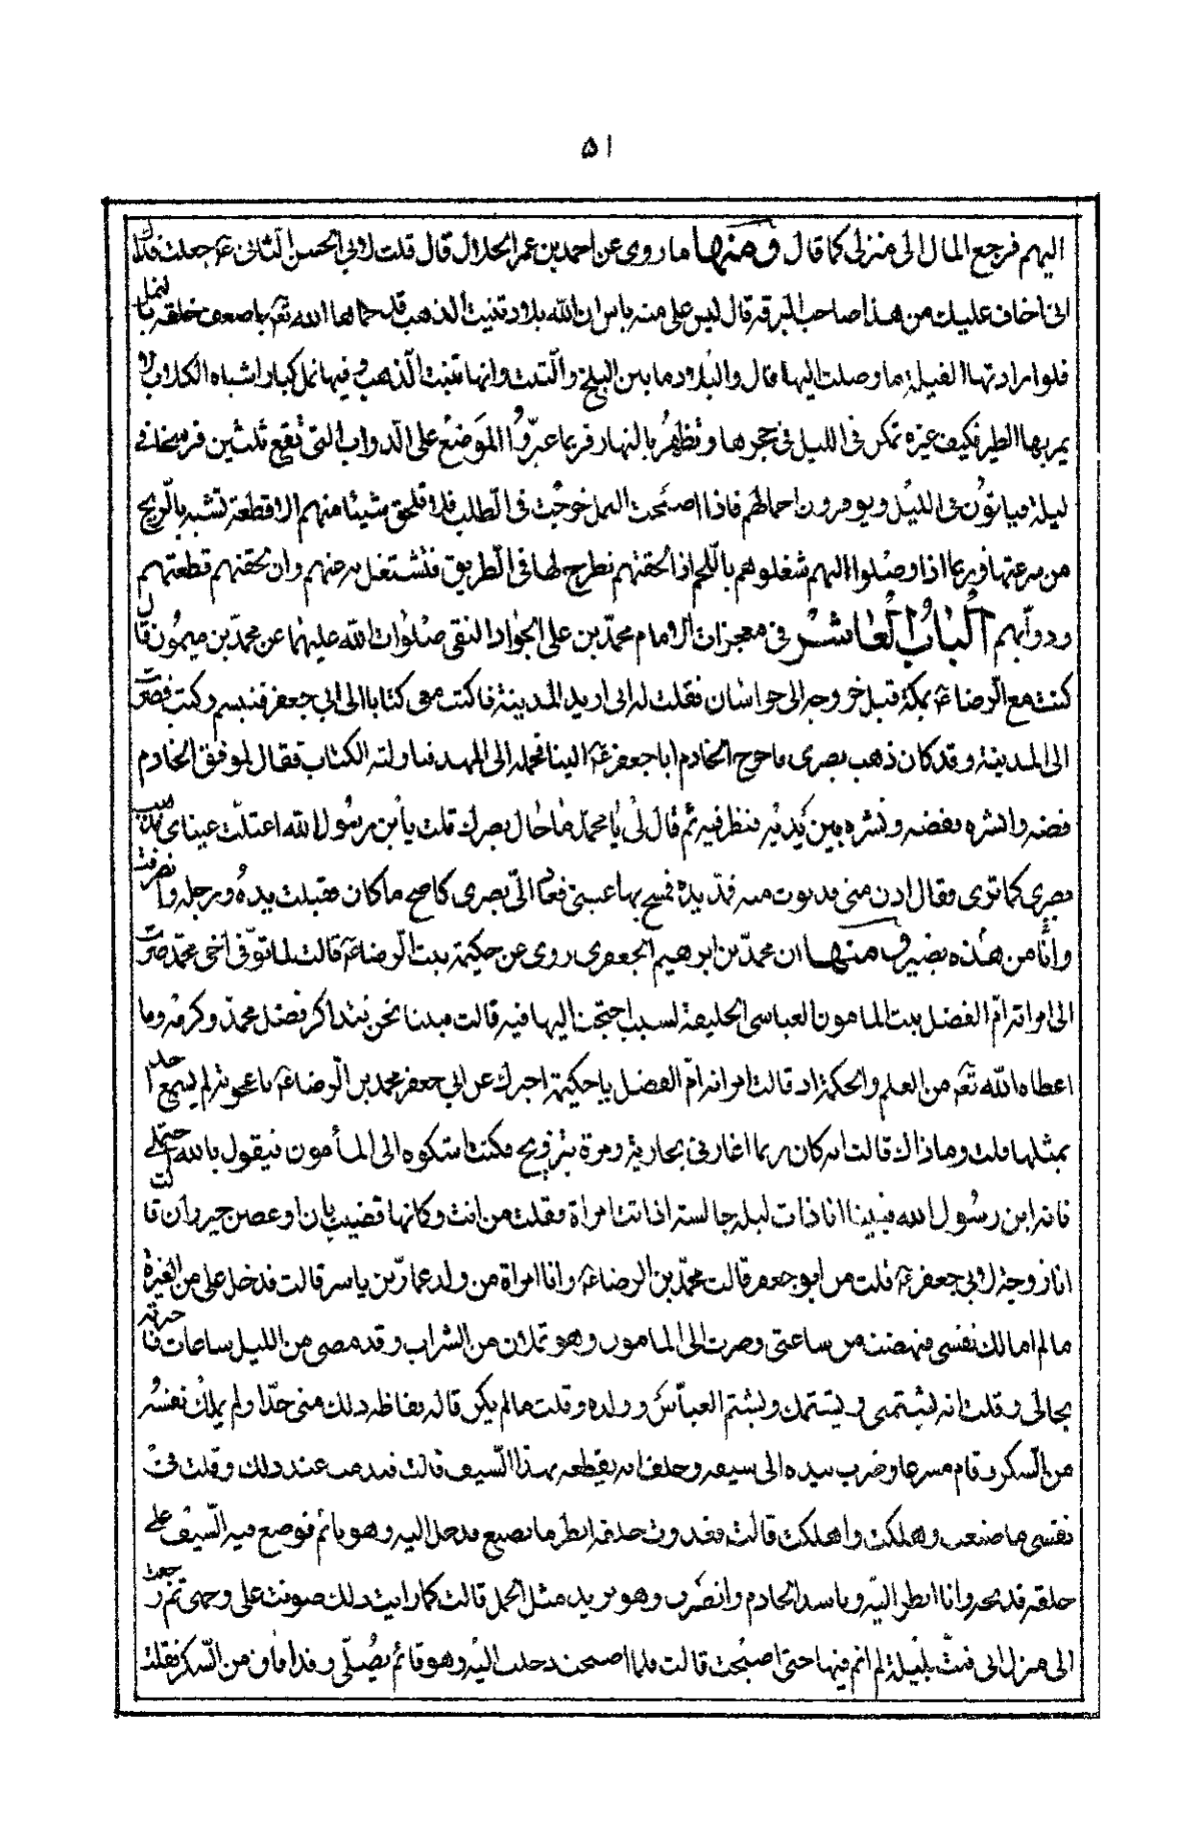 ۵۱
اليهم فرجع المال الى منزلى كما قال ومنها ما روى عن احمد بن عمر الحلال قال قلت لابي الحسن الثانى عۤ جعلت فداك
انى اخاف عليك من هذا صاحب البرقه قال ليس على منه باس ان الله بلاد تنبت الذهب قد حماها الله تعۤ باضعف خلقه بالنمل
فلو ارادتها الفيلة ما وصلت اليها قال والبلاد ما بين البلخ والتبت وانها تنبت الذهب وفيها نمل كبار اشباه الكلاب لا
يمر بها الطير فكيف غيره تمكن فى الليل فى حجرها وتظهر بالنهار فربما عبروا الموضع على الدواب التى تقع ثلثين فرسخا فى
ليلة فياتون فى الليل ويوفرون احمالهم فاذا اصبحت النمل خرجت فى الطلب فلا تلحق شيئا منهم الا قطعة تشبه بالريح
من سرعتها وربما اذا وصلوا اليهم شغلوهم باللحم اذا لحقتهم نطرح لها فى الطريق فتشتغل به عنهم وان لحقتهم قطعتهم
ودوابهم الباب العاشر فى معجزات الامام محمد بن على الجواد النقى صلوات الله عليهما عن محمد بن ميمون قال
كنت مع الرضا عۤ بمكة قبل خروجه الى خراسان فقلت له انى اريد المدينة فاكتب معى كتابا الى ابى جعفر فتبسم وكتب فصرت
الى المدينة وقد كان ذهب بصرى فاخرج الخادم ابا جعفر عۤ الينا فحمله الى المهد فناولته الكتاب فقال لموفق الخادم
فضه وانشره ففضه ونشره بين يديه فنظر فيه ثم قال لى يا محمد ما حال بصرك قلت يا بن رسول الله اعتلت عيناى فذهب
بصرى كما ترى فقال ادن منى فدنوت منه فمد يده فمسح بها عينى فعاد الىّ بصرى كاصح ما كان فقبلت يده ورجله وانصرفت
وانا من هذه بصير ومنها ان محمد بن ابرهيم الجعفرى روى عن حكيمة بنت الرضا عۤ قالت لما توفى اخى محمد صرت
الى امراته ام الفضل بنت المامون العباسى الخليفة لسبب احتجت اليها فيه قالت فبينا نحن نتذاكر فضل محمد وكرمه وما
اعطاه الله تعۤ من العلم والحكمة اذ قالت امراته ام الفضل يا حكيمة اخبرك عن ابى جعفر محمد بن الرضا عۤ باعجوبة لم يسمع احد
بمثلها قلت وما ذاك قالت انه كان ربما اغارنى بجارية ومرة بتزويج فكنت اشكوه الى المأمون فيقول يا بنية احتملى
فانه ابن رسول الله فبينا انا ذات ليلة جالسة اذ اتت امراة فقلت من انت وكانها قضيب بان او غصن خيزران قالت
انا زوجة لابى جعفر عۤ قلت من ابو جعفر قالت محمد بن الرضا عۤ وانا امراة من ولد عمار بن ياسر قالت فدخل على من الغيرة
ما لم املك نفسى فنهضت من ساعتى وصرت الى المامون وهو ثملان من الشراب وقد مضى من الليل ساعات فاخبرته
بحالى وقلت انه يشتمنى ويشتمك ويشتم العباس وولده وقلت ما لم يكن قاله فغاظه ذلك منى جدا ولم يملك نفسه
من السكر وقام مسرعا وضرب بيده الى سيفه وحلف انه يقطعه بهذا السيف قالت فندمت عند ذلك وقلت فى
نفسى ما صنعت وهلكت واهلكت قالت فعدوت خلفه انظر ما يصنع فدخل اليه وهو نائم فوضع فيه السيف على
حلقه فذبحه وانا انظر اليه وياسر الخادم وانصرف وهو يزبد مثل الجمل قالت كما رايت ذلك هربت على وجهى ثم رجعت
الى منزل ابى فبت بليلة لم انم فيها حتى اصبحت قالت فلما اصبحت دخلت اليه وهو قائم يصلى وقد افاق من السكر فقلت